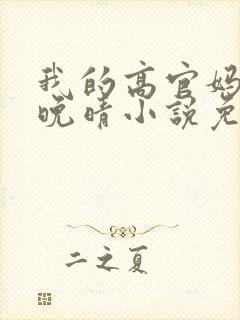 我的高官妈
晚晴小说免
二之夏